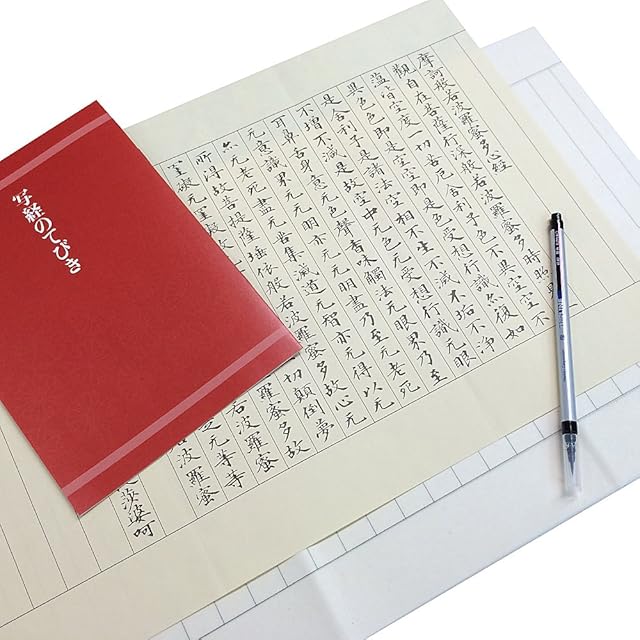 摩訶般若波羅蜜多心経
觀自在菩薩行深般若波羅蜜多時照見
蘊皆空度一切苦厄舎利子色不異空空不
異色色即是空空即是色受想行識亦復如
是舎利子是諸法空相不生不滅不垢不淨
不增不減是故空中无色无受想行識无眼
耳鼻舌身意无色聲香味觸法无眼界乃至
无意識界无无明亦无无明盡乃至无老死
亦无老死盡无苦集滅道无智亦无得以无
所得故菩提薩埵依般若波羅蜜多故心无
罣礙无罣礙故 一切顛倒夢
羅蜜多故
若波羅蜜
无等等
波羅蜜
婆呵
写経のてびき